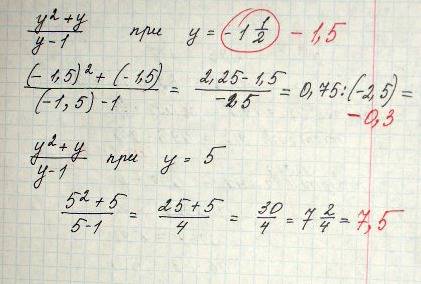 (y² + y)/(y - 1) при y = -1 1/2 - 1,5
((-1,5)² + (-1,5))/((-1,5) - 1) = (2,25 - 1,5)/(-2,5) = 0,75 : (-2,5) =
-0,3
(y² + y)/(y - 1) при y = 5
(5² + 5)/(5 - 1) = (25 + 5)/4 = 30/4 = 7 2/4 = 7,5